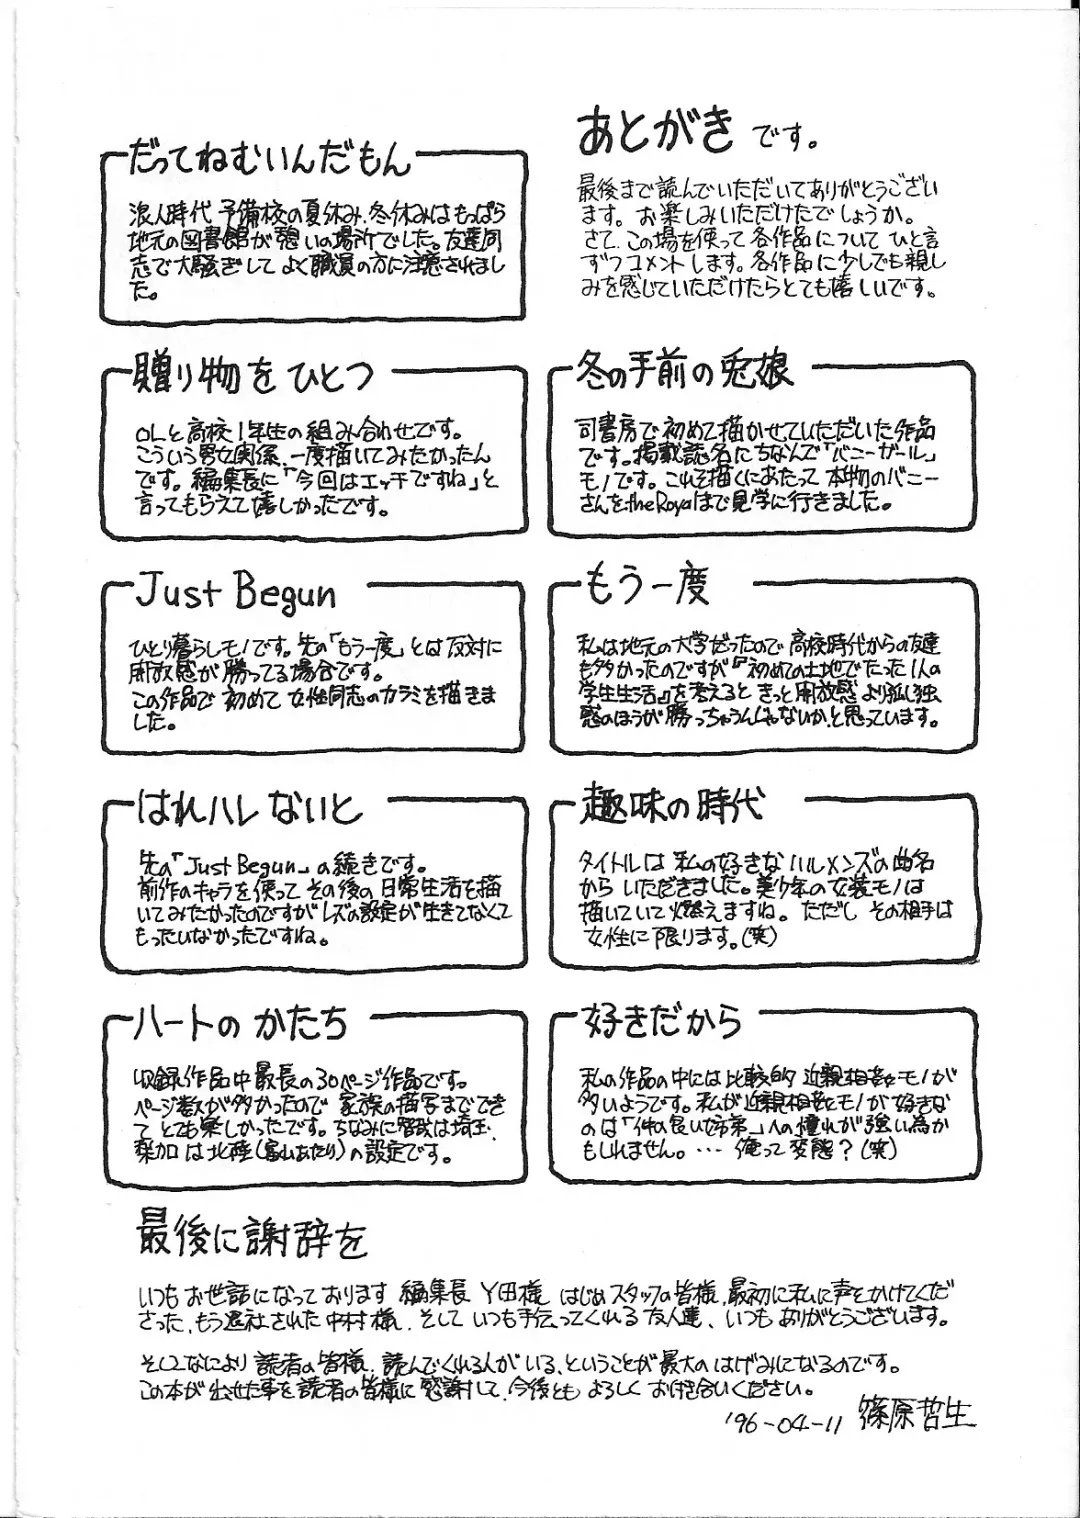 あとがき です。
最後まで読んでいただいてありがとうござい
ます。お楽しみいただけたでしょうか。
さて、この場を使って各作品について ひと言
ずつコメントします。各作品に少しでも親し
みを感じていただけたらとても嬉しいです。
だってねむいんだもん
浪人時代 予備校の夏休み、冬休みはもっぱら
地元の図書館が憩いの場所でした。友達同
志で大騒ぎして よく職員の方に注意されまし
た。
冬の手前の兎娘
司書房で初めて描かせていただいた作品
です。掲載誌名にちなんで「バニーガール」
モノです。これを描くにあたって 本物のバニー
さんをthe Royalまで見学に行きました。
贈り物を ひとつ
OLと高校1年生の組み合わせです。
こういう男女関係、一度描いてみたかったん
です。編集長に「今回はエッチですね」と
言ってもらえて嬉しかったです。
もう一度
私は地元の大学だったので 高校時代からの友達
も多かったのですが『初めての土地でたった1人の
学生生活』を考えると きっと開放感より孤独
感のほうが勝っちゃうんじゃないか、と思っています。
Just Begun
ひとり暮らしモノです。先の「もう一度」とは反対に
開放感が勝ってる場合です。
この作品で 初めて 女性同志のカラミを描きま
した。
趣味の時代
タイトルは 私の好きな ハルメンズの曲名
から いただきました。美少年の女装モノは
描いていて 燃えますね。ただし その相手は
女性に限ります。(笑)
はれハレないと
先の「Just Begun」の続きです。
前作のキャラを使って その後の日常生活を描
いてみたかったのですが レズの設定が生きてなくて
もったいなかったですね。
好きだから
私の作品の中には 比較的 近親相姦モノが
多いようです。私が近親相姦モノが好きな
のは「仲の良い姉弟」への憧れが強い為か
もしれません。… 俺って変態?(笑)
ハートの かたち
収録作品中最長の30ページ作品です。
ページ数が多かったので 家族の描写までできて
て とても楽しかったです。ちなみに 智哉は埼玉、
葉加は北陸(富山あたり)の設定です。
最後に謝辞を
いつも お世話になっております 編集長 Y田様 はじめスタッフの皆様、最初に私に声をかけてくだ
さった、もう退社された中村様、そして いつも手伝ってくれる 友人達、いつも ありがとうございます。
そしてなにより 読者の皆様、読んでくれる人がいる、ということが最大の はげみになるのです。
この本が 出せた事を読者の皆様に感謝して、今後とも よろしく お付き合いください。
'96-04-11 篠原哲生